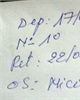 Dep: 17/
N: 10
Ret: 22/0
OS: Mici